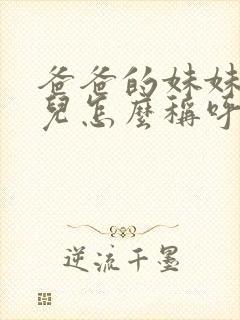 爸爸的妹妹
兒怎麼稱呼
逆流千墨